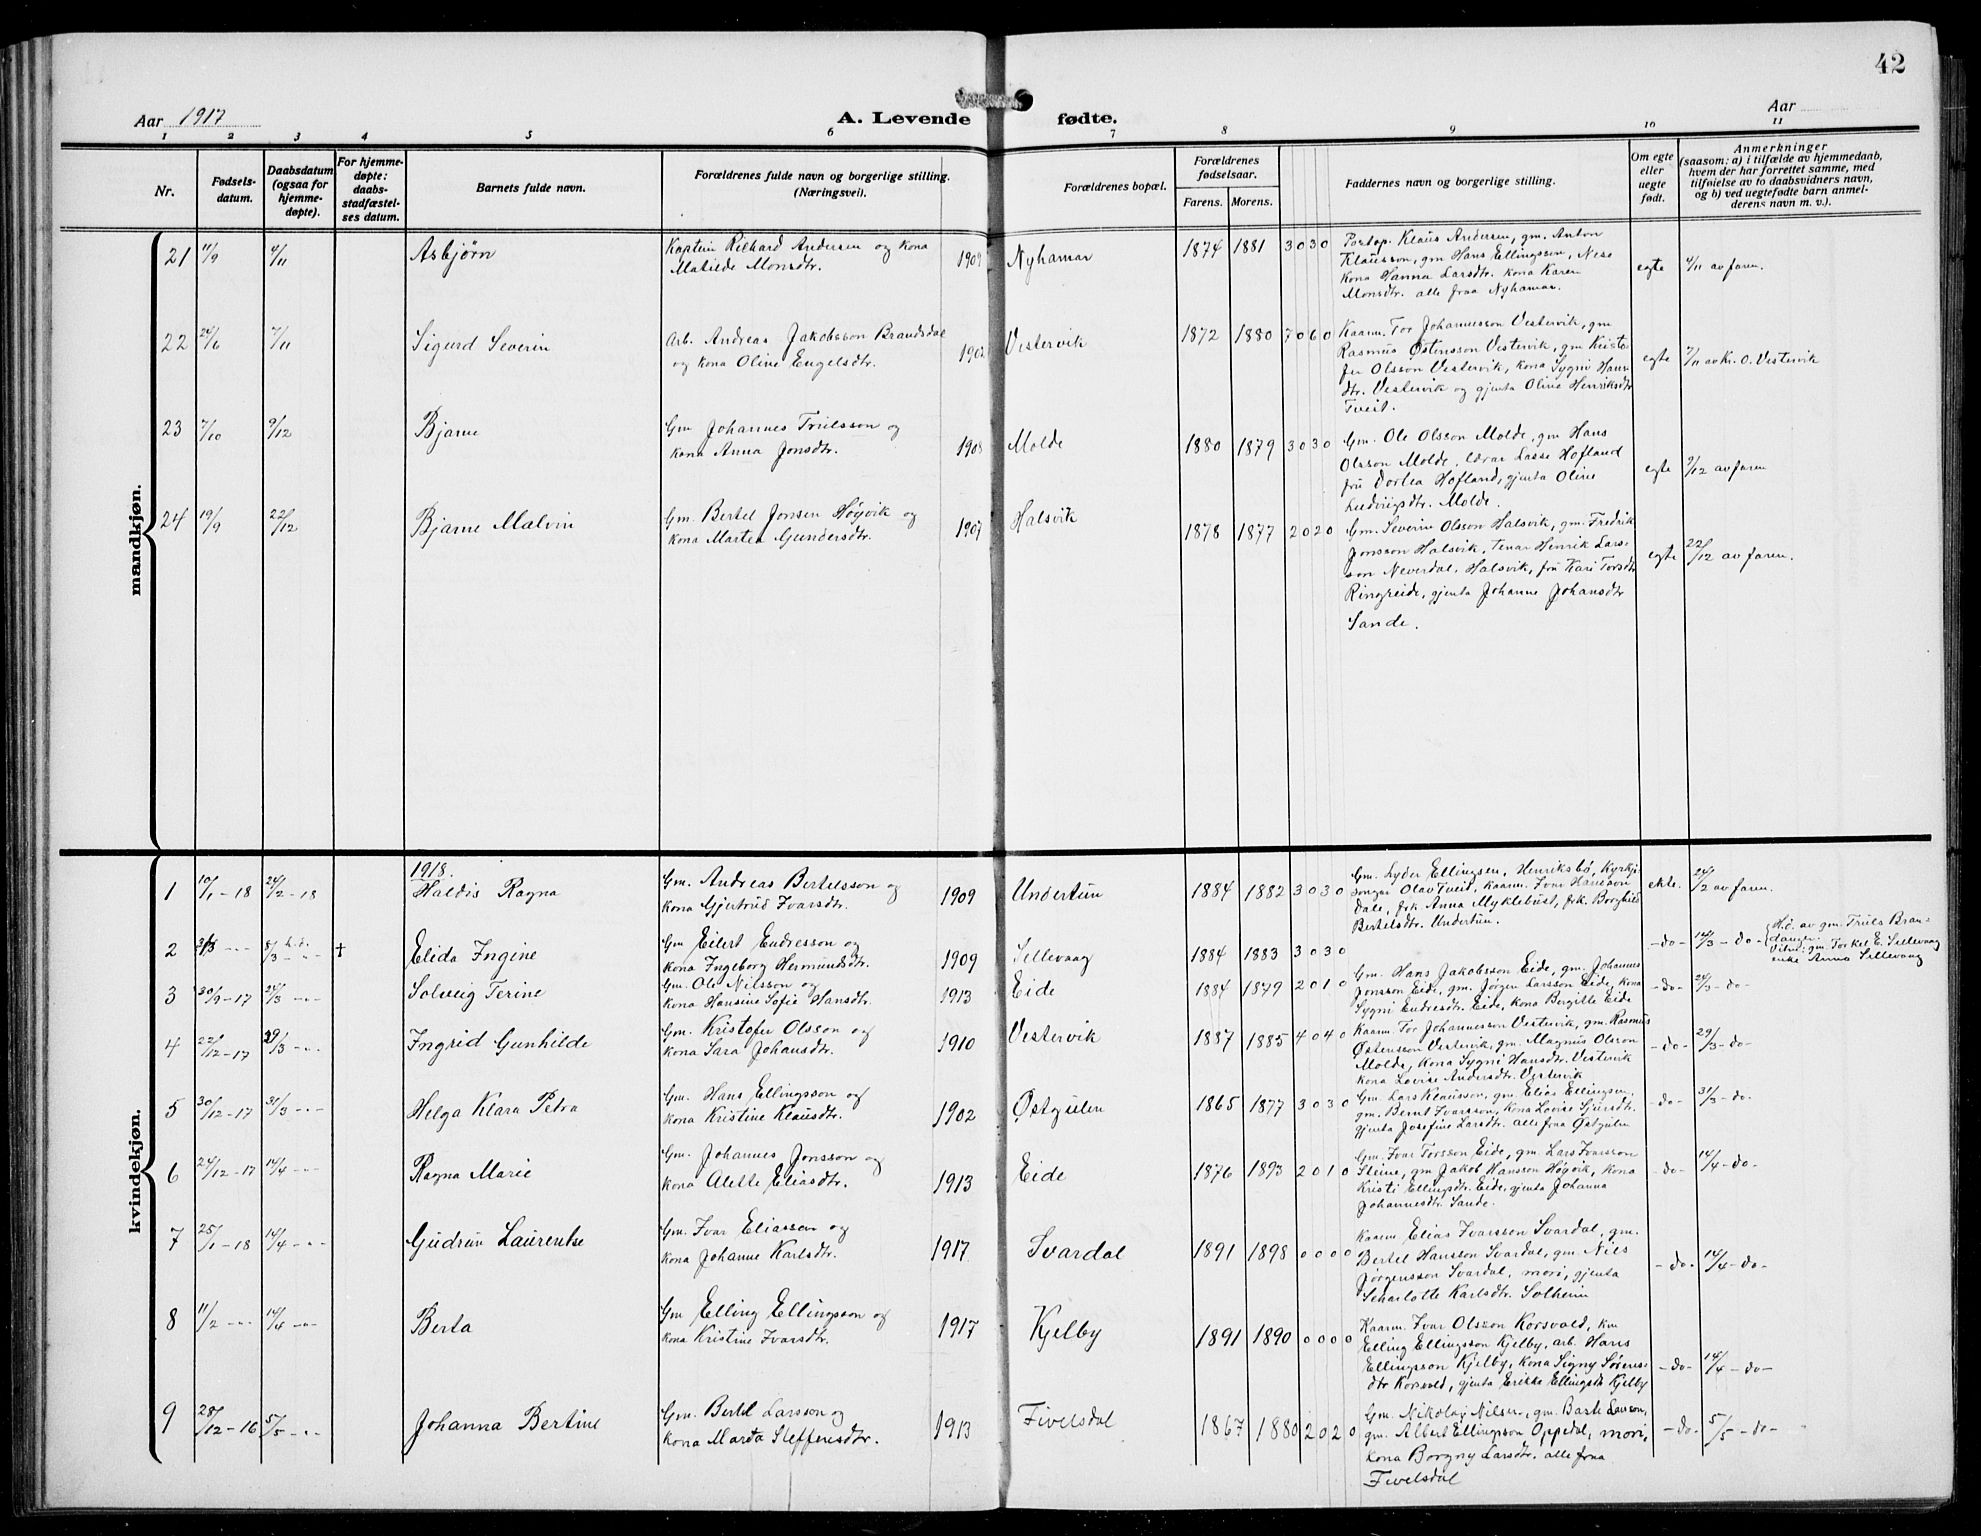 42
Aar 1917
A. Levende fødte.
Aar
1 2 3 4 5 6 7 8 9 10 11
Nr.
Fødsels-
datum.
Daabsdatum
(ogsaa for
hjemme-
døpte).
For hjemme-
døpte:
daabs-
stadfæstel-
ses datum.
Barnets fulde navn.
Forældrenes fulde navn og borgerlige stilling.
(Næringsvei).
Forældrenes bopæl.
Forældrenes
fødselsaar.
Farens. Morens.
Faddernes navn og borgerlige stilling.
Om egte
eller
uegte
født.
Anmerkninger
(saasom: a) i tilfælde av hjemmedaab,
hvem der har forrettet samme, med
tilføielse av to daabsvidners navn,
og b) ved uegtefødte barn anmel-
derens navn m. v.).
mandkjøn.
21 11/9 4/11 Asbjørn
Kaptein Rikhard Andersen og kona
Matilde Monsdtr. 1909
Nyhamar 1874 1881 3 0 3 0
Postop. Klaus Andersen, gm. Anton
Klausson, gm Hans Ellingssen, Nese
kona Hanna Larsdtr. kona Karen
Monsdtr. alle fraa Nyhamar.
egte 4/11 av faren.
22 24/6 7/11 Sigurd Severin
Arb. Andreas Jakobsson Brandsdal
og kona Oline Engelsdtr. 1902
Vestervik 1872 1880 7 0 6 0
Kaarm. Tor Johannesson Vestervik, gm
Rasmus Østensson Vestervik, gm Kristo-
fer Olsson Vestervik, kona Sygni Hans-
dtr. Vestervik og gjenta Oline Henriksdtr
Tveit.
egte 7/11 av Kr. O. Vestervik
23 7/10 9/12 Bjarne
Gm Johannes Trulsson og
kona Anna Jonsdtr. 1908
Molde 1880 1879 3 0 3 0
Gm. Ole Olsson Molde, gm Hans
Olsson Molde, lærar Lasse Hofland
fru Dortea Hofland, gjenta Oline
Ludvigsdtr. Molde.
egte 9/12 av faren
24 19/9 22/12 Bjarne Malvin
Gm. Bertel Jonsen Høgvik og
kona Martea Gundersdtr. 1907
Halsvik 1878 1877 2 0 2 0
Gm. Severin Olsson Halsvik, gm. Fredrik
Jonsson Halsvik, tenar Henrik Lars-
son Neverdal, Halsvik, fru Kari Torsdtr
Ringreide, gjenta Johanne Johansdtr
Sande.
egte 22/12 av faren.
kvindekjøn.
1918.
1 10/1-18 24/2-18 Haldis Ragna
Gm. Andreas Bertelsson og
kona Gjertrud Ivarsdtr. 1909
Undertun 1884 1882 3 0 3 0
Gm. Lyder Ellingsen, Henriksbø, Kyrkje-
songar Olav Tveit, kaarm. Ivar Hansson
Dale, frk Anna Myklebust, frk. Borghild
Bertelsdtr. Undertun.
ekte. 24/2 av faren.
2 8/3 h.d. † Elida Ingine
Gm Eilert Endresson og
kona Ingeborg Hermundsdtr. 1909
Sellevaag 1884 1883 3 0 3 0
-do- 14/3 - do-
H.d. av gm. Truls Bran-
danger.
Vitne: gm. Torkel E. Sellevaag
enke Anna Sellevaag
3 30/9-17 24/3 -"- Solveig Terine
Gm. Ole Nilsson og
kona Hansine Sofie Hansdtr. 1913
Eide 1884 1879 2 0 1 0
Gm. Hans Jakobsson Eide, gm. Johannes
Jonsson Eide, gm. Jørgen Larsson Eide, kona
Sygni Endresdtr. Eide, kona Bergitte Eide
-do- 24/3 -do-
4 22/12-17 29/3 -"- Ingrid Gunhilde
Gm. Kristofer Olsson og
kona Sara Johansdtr. 1910
Vestervik 1887 1885 4 0 4 0
Kaarm. Tor Johannesson Vestervik, gm. Rasmus
Østensson Vestervik, gm. Magnus Olsson
Molde, kona Sygni Hansdtr. Vestervik
kona Lovise Andersdtr. Vestervik
-do- 29/3 -do-
5 30/12-17 31/3 -"- Helga Klara Petra
Gm. Hans Ellingsson og
kona Kristine Klausdtr. 1902
Østgulen 1865 1877 3 0 3 0
Gm. Lars Klausson, gm. Elias Ellingsen,
gm. Bernt Ivarsson, kona Lovise Sjursdtr.
gjenta Josefine Larsdtr. alle fraa Østgulen
-do- 31/3 -do-
6 24/12-17 14/4 -"- Ragna Marie
Gm. Johannes Jonsson og
kona Alette Eliasdtr. 1913
Eide 1876 1893 2 0 1 0
Gm. Ivar Torsson Eide, gm. Lars Ivarsson
Steine, gm Jakob Hansson Høgvik, kona
Kristi Ellingsdtr. Eide, gjenta Johanna
Johannesdtr. Sande.
-do- 14/4 -do-
7 25/1-18 14/4 -"- Gudrun Laurentse
Gm. Ivar Eliassen og
kona Johanne Karlsdtr. 1917
Svardal 1891 1898 0 0 0 0
Kaarm Elias Ivarssen Svardal, gm.
Bertel Hansson Svardal, gm. Nils
Jørgensson Svardal, mori, gjenta
Scharlotte Karlsdtr. Solheim
-do- 14/4 -do-
8 11/2 -"- 14/4 -"- Berta
Gm Elling Ellingsson og
kona Kristine Ivarsdtr. 1917
Kjelby 1891 1890 0 0 0 0
Kaarm. Ivar Olsson Korsvold, km
Elling Ellingsson Kjelby, arb. Hans
Ellingsson Kjelby, kona Signy Søens-
dtr Korsvold, gjenta Erikke Ellingsdtr Kjelby
-do- 14/4 -do-
9 28/12-16 5/5 -"- Johanna Bertine
Gm. Bertel Larsson og
kona Marta Steffensdtr. 1913
Fivelsdal 1867 1880 2 0 2 0
Gm. Nikolai Nilsen, gm. Larsson,
gm. Albert Ellingsson Oppedal, mori,
kona Borgny Larsdtr. alle fraa
Fivelsdal
-do- 5/5 -do-